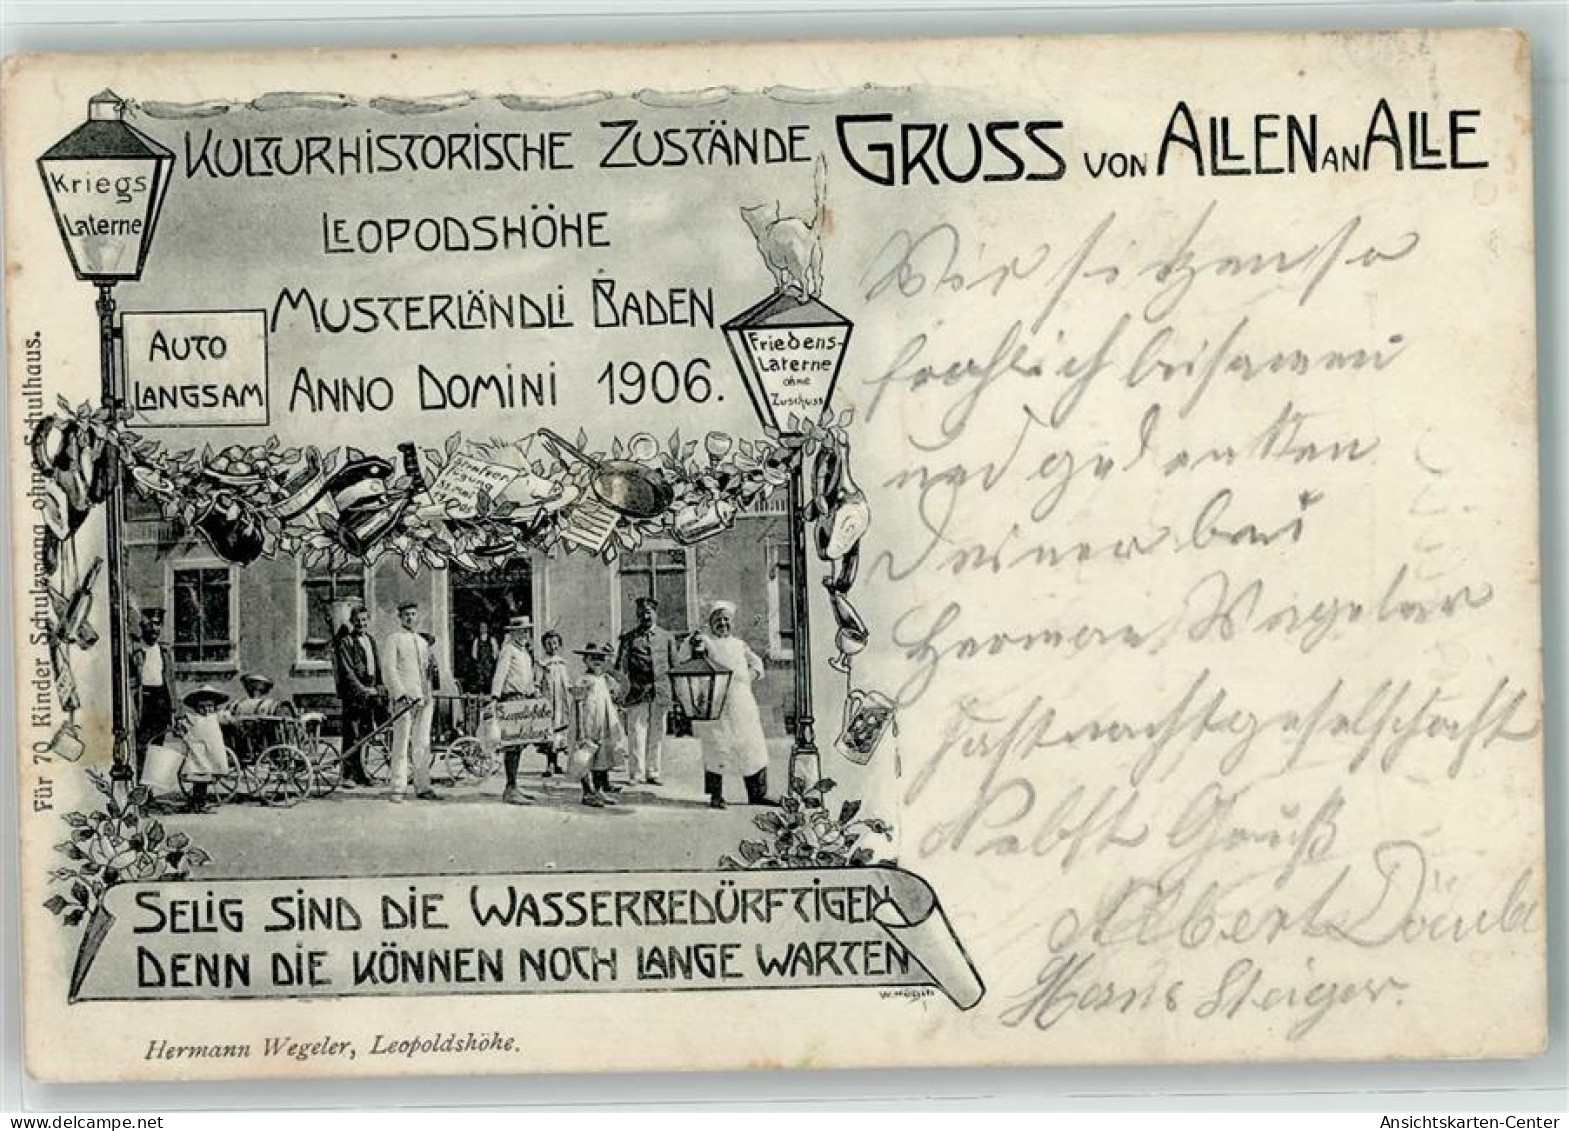 KULTURHISTORISCHE ZUSTÄNDE
LEOPODSHÖHE
MUSTERLÄNDLI BADEN
ANNO DOMINI 1906.
GRUSS VON ALLEN AN ALLE
Kriegs
Laterne
AUTO
LANGSAM
Friedens-
Laterne
ohne
Zuschuss
Für 70 Kinder Schulzwang ohne Schulhaus.
Wir sitzen so
fröhlich beisamen
und gedenken
Deiner bei
Herman Wegeler
Fastnachtgeselschaft
Nebst Gruß
Albert
Hans Steiger.
SELIG SIND DIE WASSERBEDÜRFTIGEN
DENN DIE KÖNNEN NOCH LANGE WARTEN
Hermann Wegeler, Leopoldshöhe.
Ansichtskarten-Center